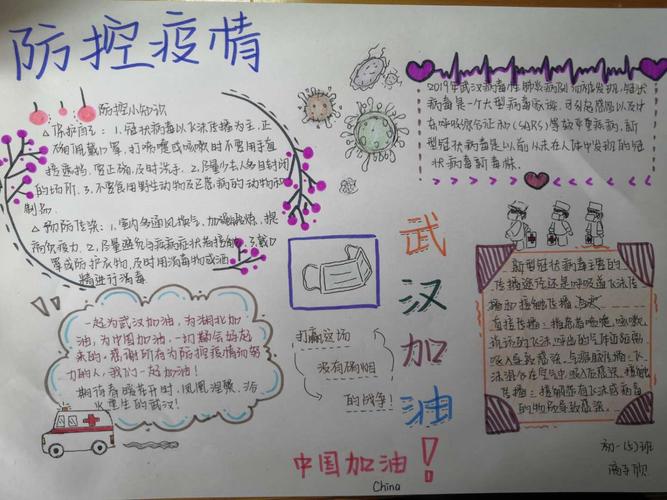 防控疫情
防控小知识
△保护自己：1.冠状病毒以飞沫传播为主，正
确佩戴口罩，打喷嚏或咳嗽时不要用手直
接遮挡，要正确，及时洗手。2.尽量少去人多且封闭
的场所。3.不要食用野生动物及已患病的动物和
制品。
△预防传染：1.室内多通风换气，加强锻炼，提
高免疫力。2.尽量避免与
口罩或防护衣物，及时用消毒物或酒
精进行消毒
一起为武汉加油，为湖北加
油，为中国加油，一切都会好起
来的，感谢所有为防控疫情而努
力的人，我们一起加油！
期待春暖花开时，凤凰涅槃，浴
火重生的武汉！
打赢这场
没有硝烟
的战争！
武汉加油！
中国加油
China
2019年武汉病毒性肺炎病例
病毒是一个大型病毒家族，可引起感冒以及
在呼吸综合征和(SARS)等较严重疾病。新
型冠状病毒是以前从未在人体中发现的冠
状病毒新毒株。
新型冠状病毒主要的
传播途径还是呼吸道飞沫传
播和接触传播
直接传播：患者喷嚏，咳嗽，
说话的飞沫，呼出的气体近距离
吸入导致感染。
沫混合在空气中，吸入后感染。接触
传播：接触
的物质导致感染。
初一(5)班